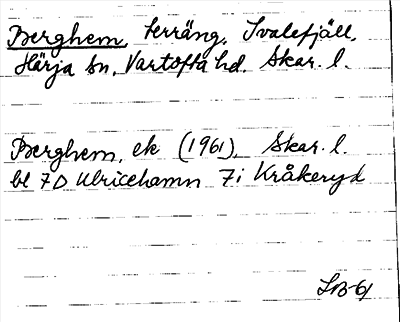 Berghem, terräng. Svalefjäll,
Härja sn, Vartofta hd. Skar. l.
Berghem, ek (1961), Skar. l.
bl 7D Ulricehamn 7i Kråkeryd
SB-61